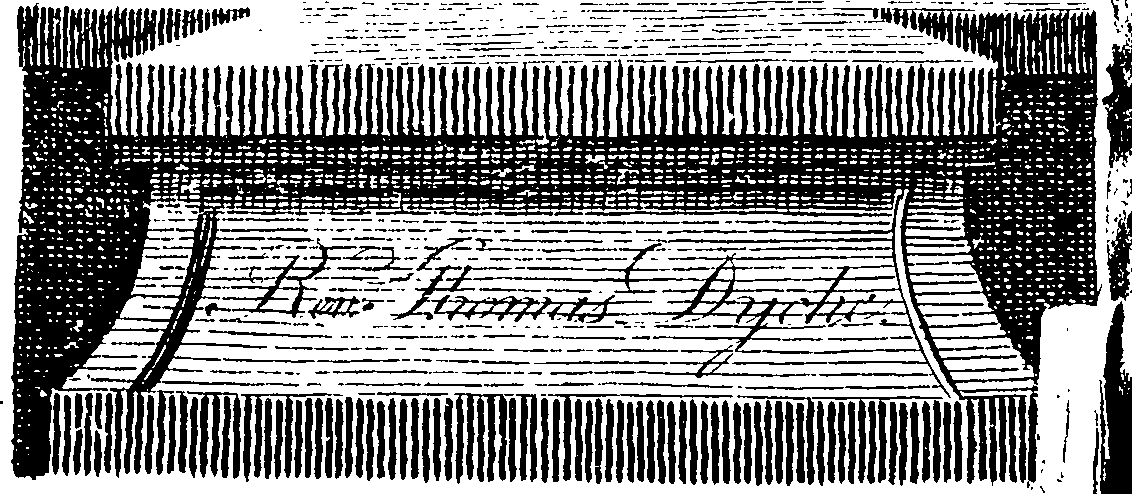 Rev. Thomas Dyche.